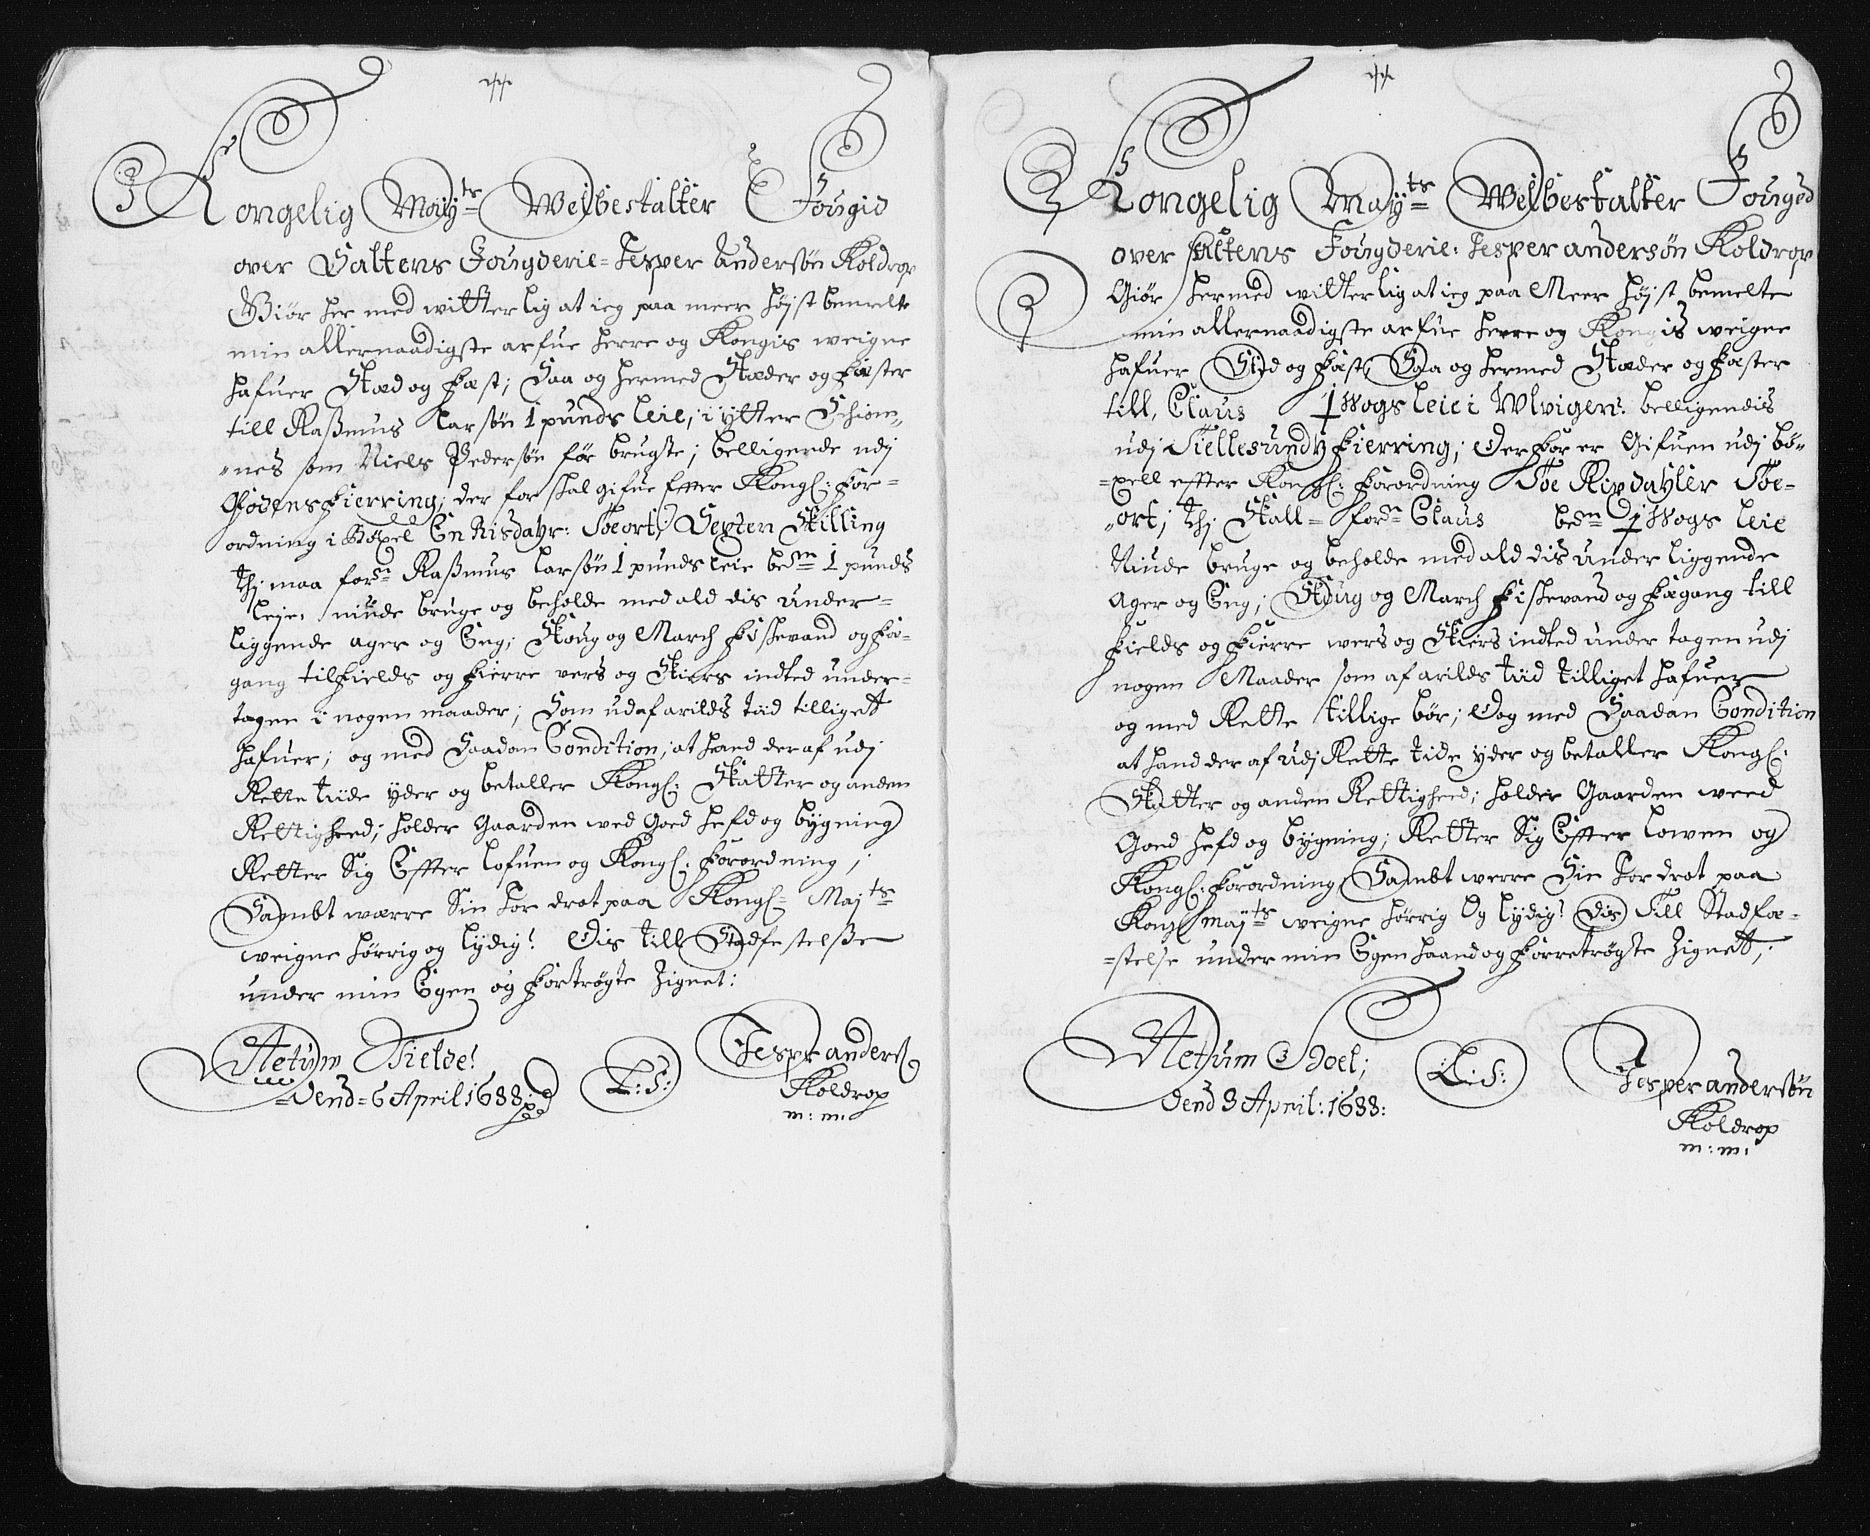 Kongelig May^ts Welbestalter Fougid
over Saltens Fougderie= Jesper Andersøn Koldrop
Giør her med witterlig at ieg paa meer høj st bemelte
min allernaadigste arfue herre og Kongis weigne
hafuer Stæd og Fæst; Saa og hermed Stæder og Fæster
till Raßmus Larsøn 1 punds leie; i ytter Schiom„
„nes som Niels Pedersøn før brugte; belligende udj
Gødens Fierring; der for skal gifue efter Kongl: For=
ordning i Bøxel En Risdalr: Toe ort; Sexten Skilling
thj maa for^ne Raßmus Larsøn 1 punds leie be^m=te 1 punds
leje: niude bruge og beholde med ald dis under=
liggende ager og Eng; Skoug og March Fiskevand og Fæ=
gang til Fields og Fierre vers og Skiers indted under=
tagen i nogen maader; Som ud af arilds tiid tilligett
hafuer; og med Saadan Condition; at hand der af udj
Rette tiide yder og betaller Kongl: Skatter og anden
Rettigheed; holder Gaarden wed Goed hefd og bygning
Retter Sig Effter lofuen og Kongl: Forordning;
Sambt wærre Sin Jor drot paa Kongl= Maj^ts
weigne hørrig og lydig! Dis till Stadfestelße
under min Egen og Fortrøgte Zignet:
Actum Tielde!
=Dend=6 April 1688:
L:S:
Jesper anders:
Koldrop
m:m:
Kongelig May^ts Welbestalter Fouged
over Saltens Fougderie: Jesper andersøn Koldrop
Giør hermed witterlig at ieg paa Meer høj st bemelte
min allernaadigste arfue herre og Kongis weigne
hafuer Stæd og Fæst, Saa og hermed Stæder og Fæster
till, Claus 1 Wogs leie i Ulvigen: belligendis
udj Tiellesundtz Fierring; Derfor er Gifuen udj bø=
=xell effter Kongl: Forordning Toe Rixdayler Toe=
„ort; thj Skall= for^ne Claus be^m=te 1 Wogs leie
Niude bruge og beholde med ald dis under liggende
Ager og Eng; Skoug og March Fiskevand og Fægang till
Fields og Fierre wers og Skiers indted under tagen udj
nogen Maader som af arilds tiid tilliget hafuer
og med Rette tillige bør; Dog med Saadan Condition
at hand der af udj Rette tide yder og betaller Kongl:
Skatter og anden Rettigheed; holder Gaarden weed
Goed hefd og bygning; Retter Sig Effter lowen og
Kongl: Forordning Sambt werre Sin Jor drot paa
Kongl may^ts weigne hørrig Og lydig! Dis Till Stadfæ=
=stelse under min Egen haand og Forretrøgte Zignett;
Actum Boel;
Dend 8 April: 1688:
L:S:
Jesper andersøn
Koldrop
m:m: